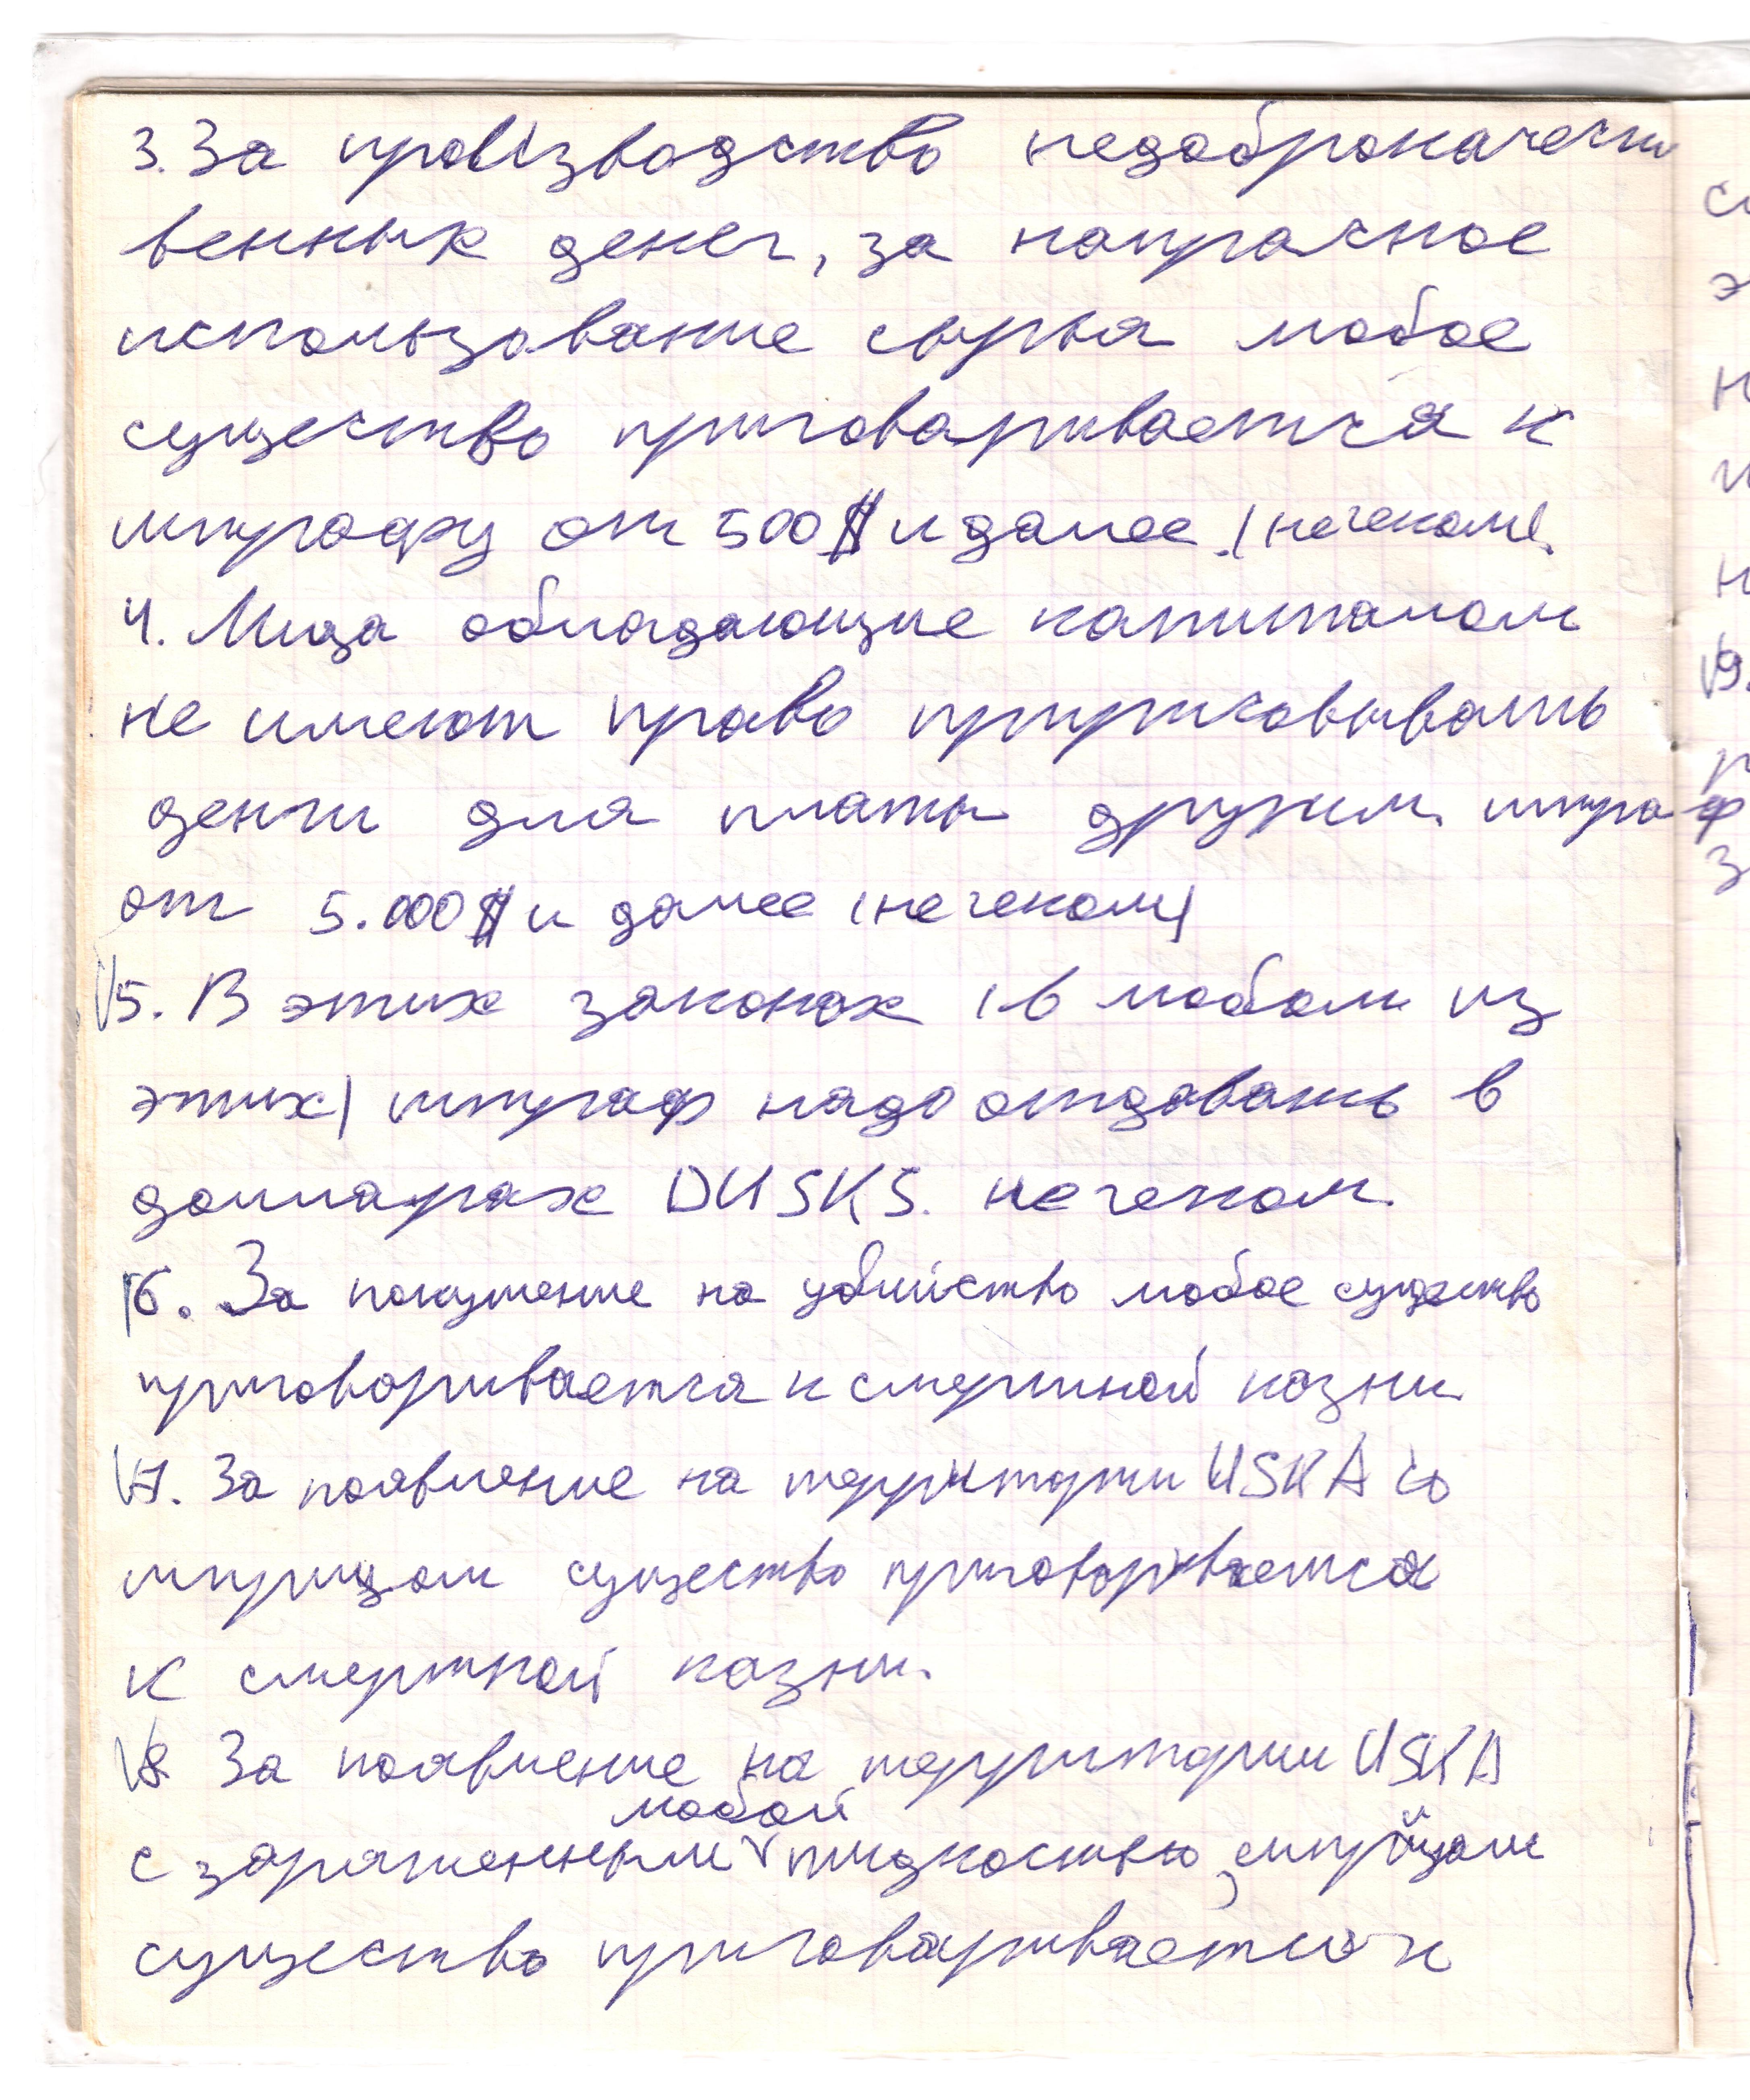 3. За производство недоброкачест
венных денег, за напрасное
использование сырья любое
существо приговаривается к
штрафу от 500$ и далее. (не чеком).
4. Лица обладающие капиталом
не имеют право пририсовывать
деньги для платы другим. штраф
от 5.000$ и далее (не чеком)
V5. В этих законах (в любом из
этих) штраф надо отдавать в
долларах DUSKS. не чеком.
V6. За покушение на убийство любое существо
приговаривается к смертной казни
V7. За появление на территории USKA со
шприцом существо приговаривается
к смертной казни.
V8. За появление на территории USKA
любой
с зараженным V жидкостью, шприцом
существо приговаривается к
V9.